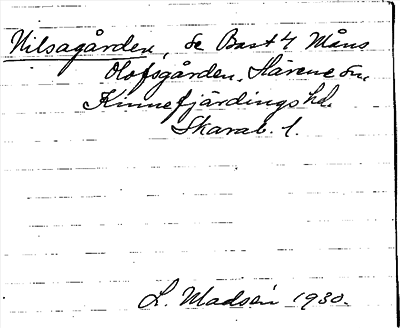 Nilsagården, se Bast 4 Måns
Olofsgården. Härene sn.
Kinnefjärdings hd.
Skarab. l.
L. Madsén 1930.